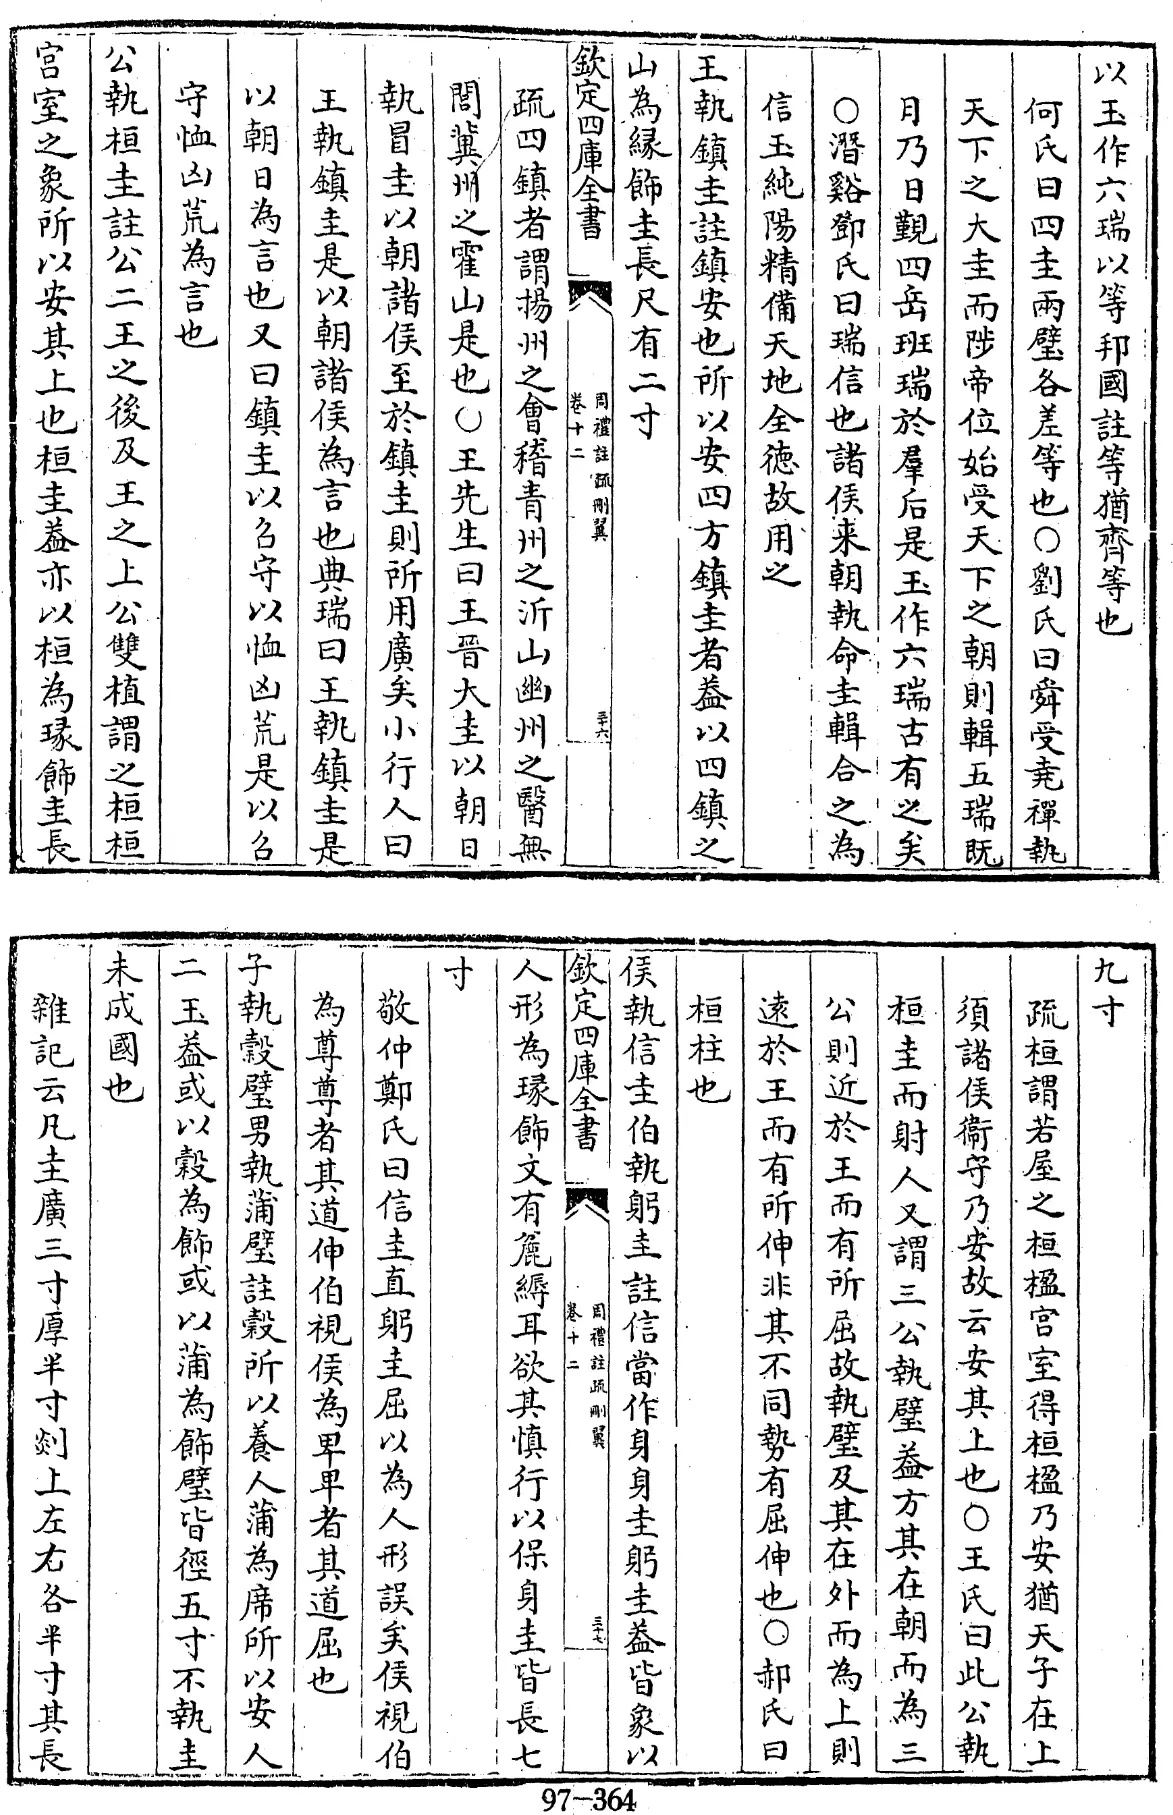 以玉作六瑞以等邦國註等猶齊等也
何氏曰四圭兩璧各差等也○劉氏曰舜受堯禪執
天下之大圭而陟帝位始受天下之朝則輯五瑞既
月乃日覲四岳班瑞於羣后是玉作六瑞古有之矣
○潛谿鄧氏曰瑞信也諸侯來朝執命圭輯合之為
信玉純陽精備天地全德故用之
王執鎮圭註鎮安也所以安四方鎮圭者葢以四鎮之
山為緣飾圭長尺有二寸
欽定四庫全書
周禮註疏刪翼
卷十二
三十六
疏四鎮者謂揚州之會稽青州之沂山幽州之醫無
閭冀州之霍山是也○王先生曰王晉大圭以朝日
執冒圭以朝諸侯至於鎮圭則所用廣矣小行人曰
王執鎮圭是以朝諸侯為言也典瑞曰王執鎮圭是
以朝日為言也又曰鎮圭以召守以恤凶荒是以召
守恤凶荒為言也
公執桓圭註公二王之後及王之上公雙植謂之桓桓
宮室之象所以安其上也桓圭葢亦以桓為瑑飾圭長
九寸
疏桓謂若屋之桓楹宮室得桓楹乃安猶天子在上
須諸侯衞守乃安故云安其上也○王氏曰此公執
桓圭而射人又謂三公執璧葢方其在朝而為三
公則近於王而有所屈故執璧及其在外而為上則
遠於王而有所伸非其不同勢有屈伸也○郝氏曰
桓柱也
侯執信圭伯執躬圭註信當作身身圭躬圭葢皆象以
欽定四庫全書
周禮註疏刪翼
卷十二
三十七
人形為瑑飾文有麄縟耳欲其慎行以保身圭皆長七
寸
敬仲鄭氏曰信圭直躬圭屈以為人形誤矣侯視伯
為尊尊者其道伸伯視侯為卑卑者其道屈也
子執穀璧男執蒲璧註穀所以養人蒲為席所以安人
二玉葢或以穀為飾或以蒲為飾璧皆徑五寸不執圭
未成國也
雜記云凡圭廣三寸厚半寸剡上左右各半寸其長
97-364